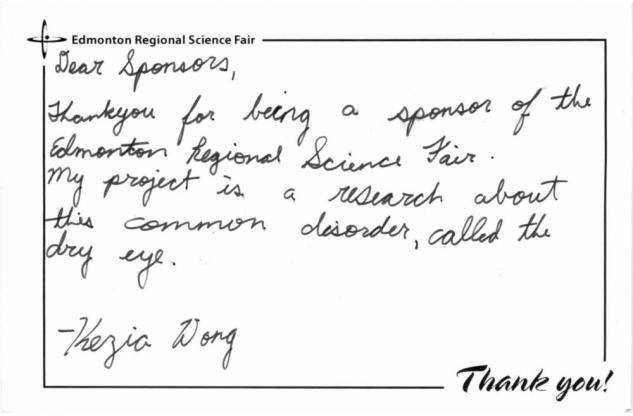 Edmonton Regional Science Fair
Dear Sponsors,
Thankyou for being a sponsor of the
Edmonton Regional Science Fair.
My project is a research about
this common disorder, called the
dry eye.
-Kezia Wong
Thank you!